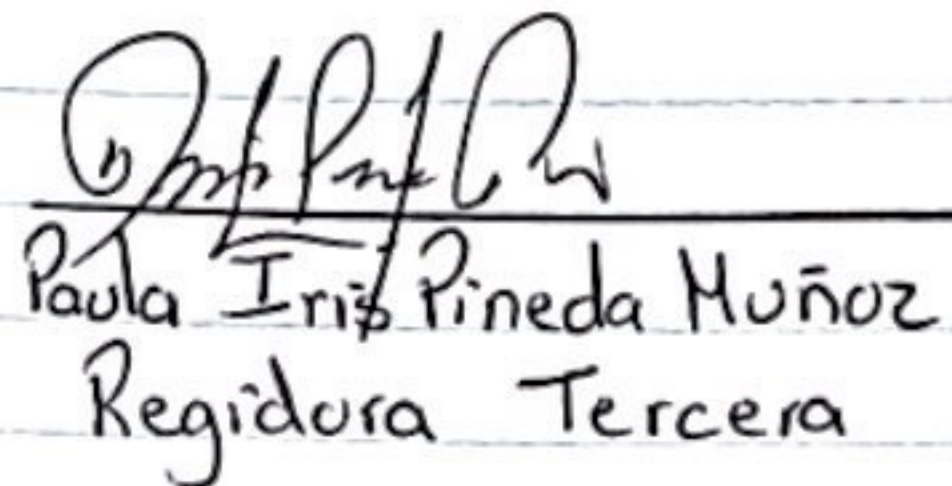 Paula Iris Pineda Muñoz
Regidora Tercera